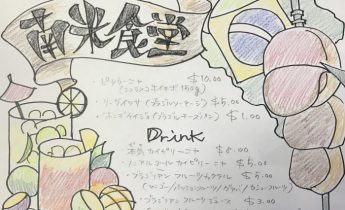 南米食堂
・ピッカーニャ $10.00
・リングイッサ (ブラジルソーセージ) $5.00
・ポンデケイジョ (ブラジルチーズパン) $1.00
Drink
・カイピリーニャ
・ノンアルコール カイピリーニャ $5.00
・ブラジリアン フルーツカクテル $5.00
(マンゴー/パッションフルーツ/グァバ/カシューフルーツ)
・ブラジリアン フルーツジュース $3.00